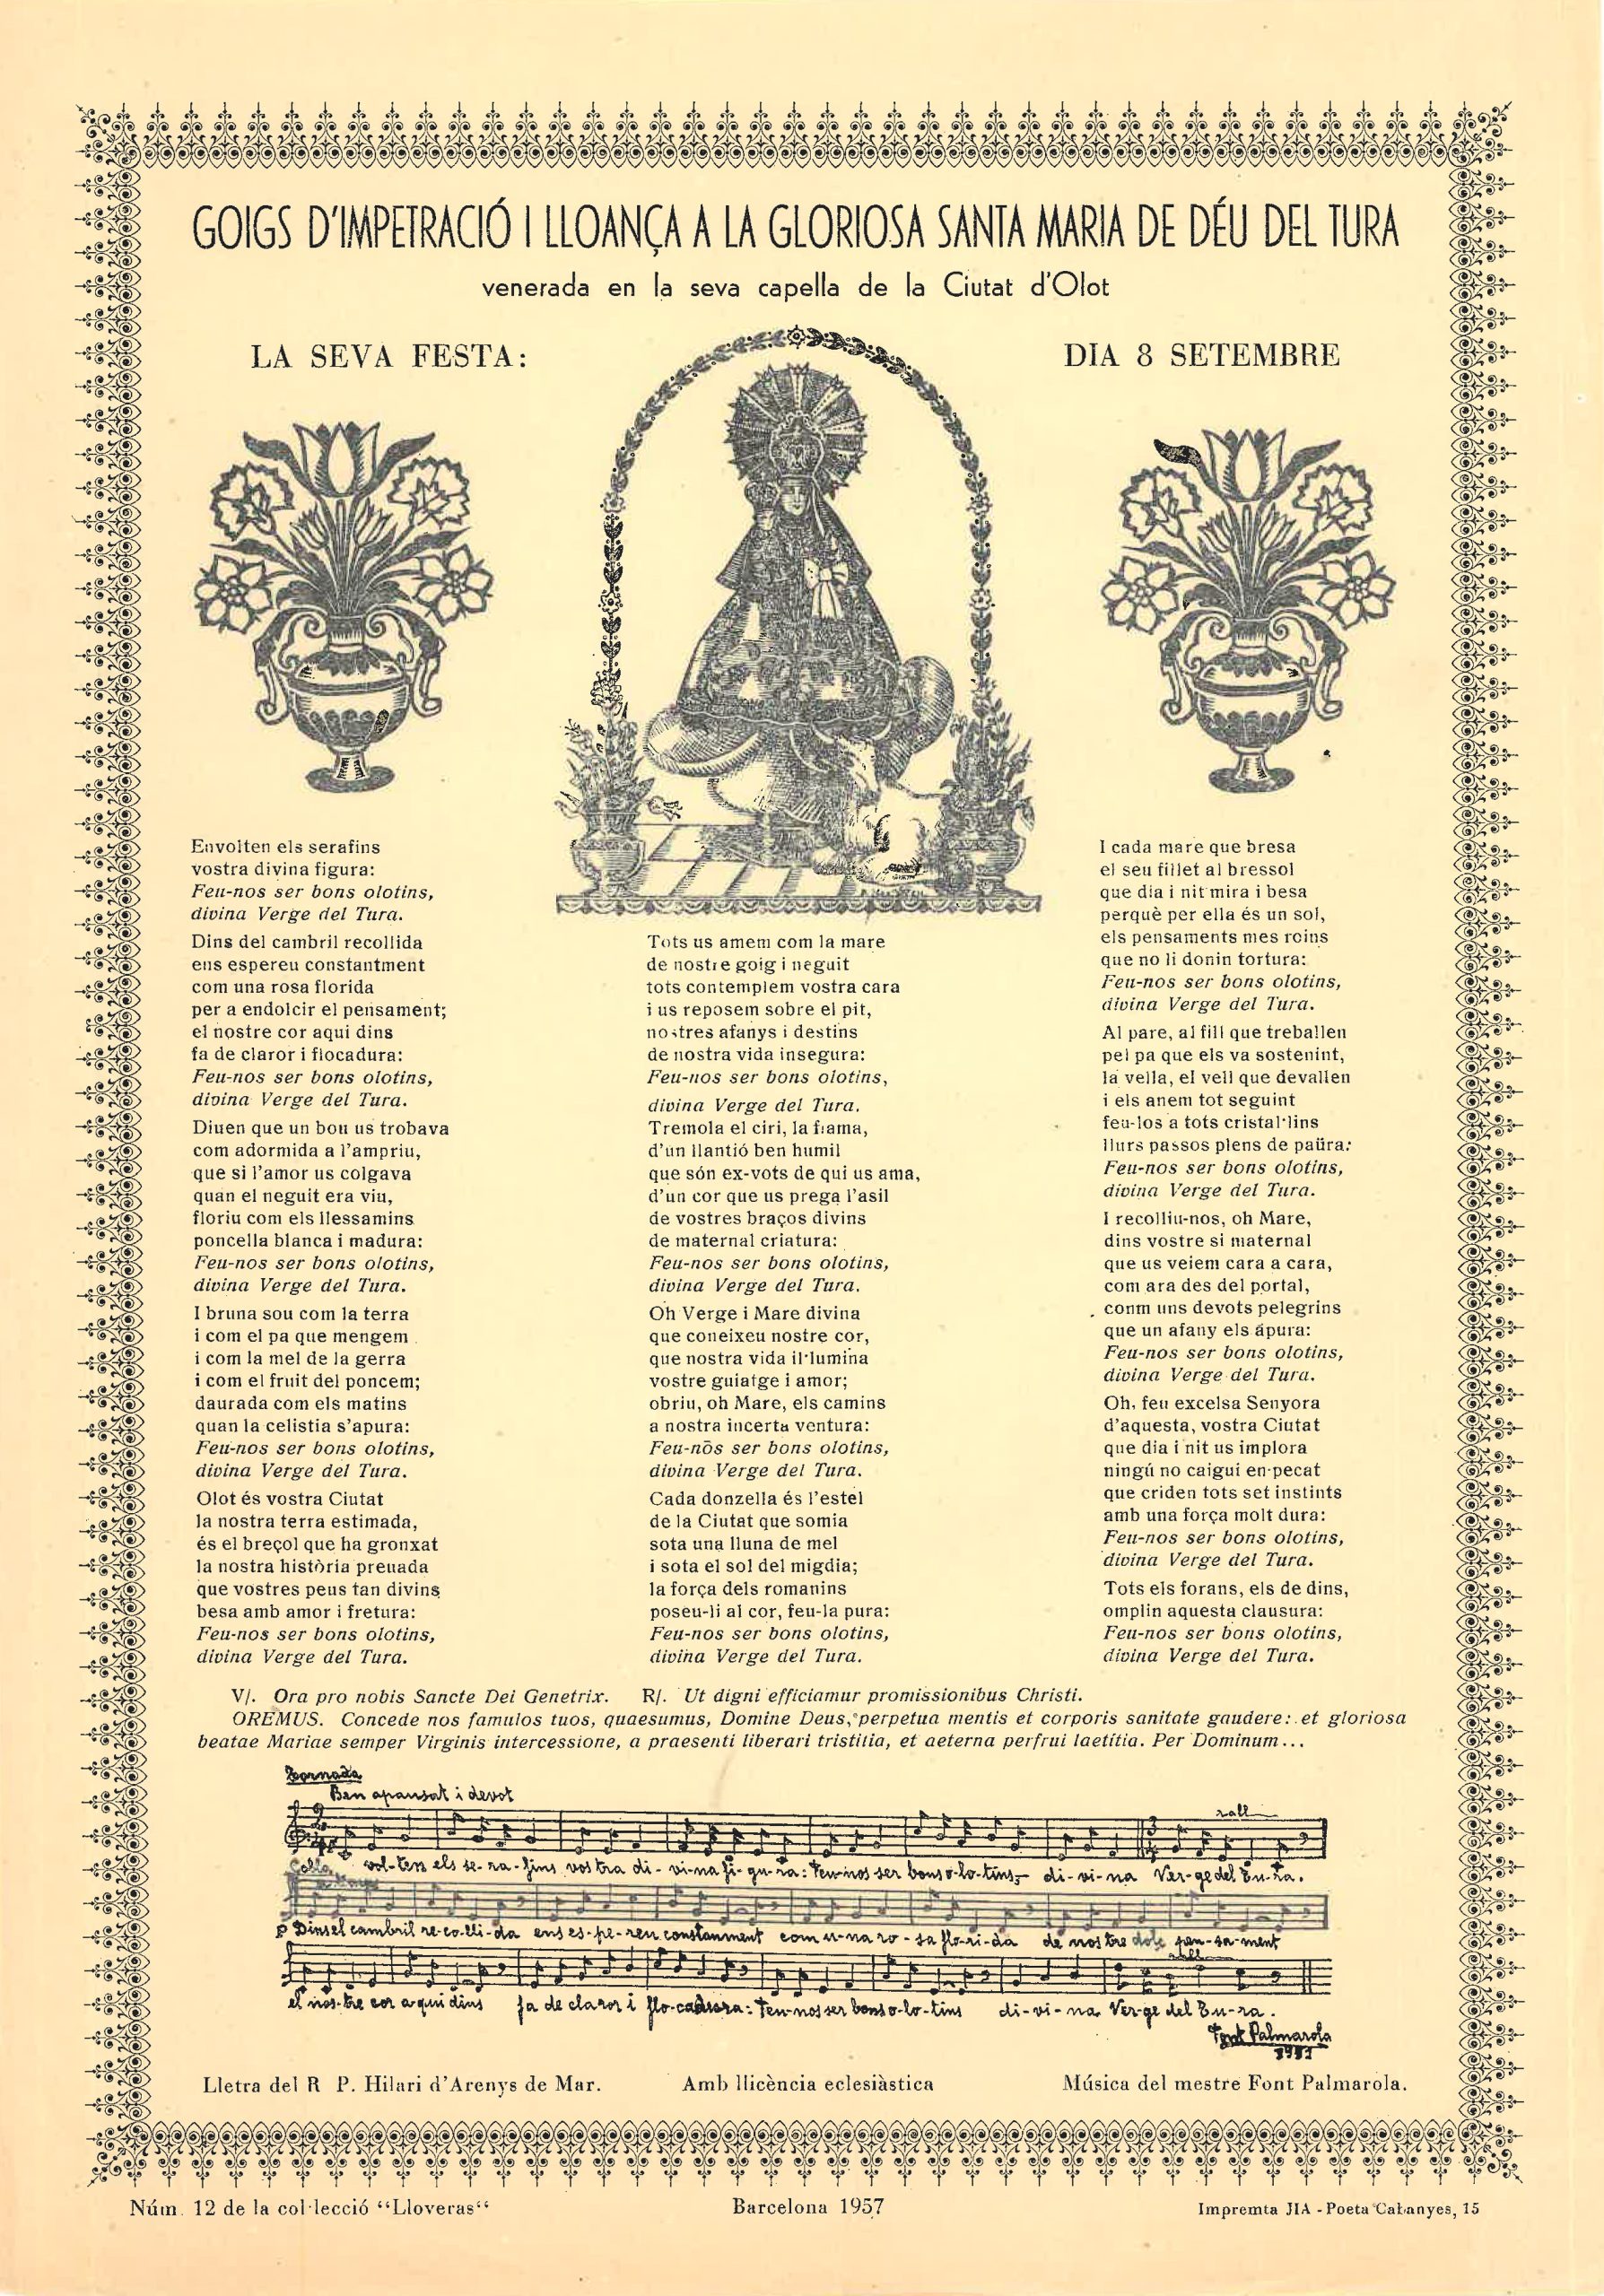 GOIGS D'IMPETRACIÓ I LLOANÇA A LA GLORIOSA SANTA MARIA DE DÉU DEL TURA
venerada en la seva capella de la Ciutat d'Olot
LA SEVA FESTA:
DIA 8 SETEMBRE
Envolten els serafins
vostra divina figura:
Feu-nos ser bons olotins,
divina Verge del Tura.
Dins del cambril recollida
ens espereu constantment
com una rosa florida
per a endolcir el pensament;
el nostre cor aqui dins
fa de claror i flocadura:
Feu-nos ser bons olotins,
divina Verge del Tura.
Diuen que un bou us trobava
com adormida a l'ampriu,
que si l'amor us colgava
quan el neguit era viu,
floriu com els llessamins
poncella blanca i madura:
Feu-nos ser bons olotins,
divina Verge del Tura.
I bruna sou com la terra
i com el pa que mengem
i com la mel de la gerra
i com el fruit del poncem;
daurada com els matins
quan la celistia s'apura:
Feu-nos ser bons olotins,
divina Verge del Tura.
Olot és vostra Ciutat
la nostra terra estimada,
és el breçol que ha gronxat
la nostra història preuada
que vostres peus tan divins
besa amb amor i fretura:
Feu-nos ser bons olotins,
divina Verge del Tura.
Tots us amem com la mare
de nostre goig i neguit
tots contemplem vostra cara
i us reposem sobre el pit,
nostres afanys i destins
de nostra vida insegura:
Feu-nos ser bons olotins,
divina Verge del Tura.
Tremola el ciri, la flama,
d'un llantió ben humil
que són ex-vots de qui us ama,
d'un cor que us prega l'asil
de vostres braços divins
de maternal criatura:
Feu-nos ser bons olotins,
divina Verge del Tura.
Oh Verge i Mare divina
que coneixeu nostre cor,
que nostra vida il·lumina
vostre guiatge i amor;
obriu, oh Mare, els camins
a nostra incerta ventura:
Feu-nos ser bons olotins,
divina Verge del Tura.
Cada donzella és l'estel
de la Ciutat que somia
sota una lluna de mel
i sota el sol del migdia;
la força dels romanins
poseu-li al cor, feu-la pura:
Feu-nos ser bons olotins,
divina Verge del Tura.
I cada mare que bresa
el seu fillet al bressol
que dia i nit mira i besa
perquè per ella és un sol,
els pensaments mes roins
que no li donin tortura:
Feu-nos ser bons olotins,
divina Verge del Tura.
Al pare, al fill que treballen
pel pa que els va sostenint,
la vella, el vell que devallen
i els anem tot seguint
feu-los a tots cristal·lins
llurs passos plens de paüra:
Feu-nos ser bons olotins,
divina Verge del Tura.
I recolliu-nos, oh Mare,
dins vostre si maternal
que us veiem cara a cara,
com ara des del portal,
conm uns devots pelegrins
que un afany els apura:
Feu-nos ser bons olotins,
divina Verge del Tura.
Oh, feu excelsa Senyora
d'aquesta, vostra Ciutat
que dia i nit us implora
ningú no caigui en pecat
que criden tots set instints
amb una força molt dura:
Feu-nos ser bons olotins,
divina Verge del Tura.
Tots els forans, els de dins,
omplin aquesta clausura:
Feu-nos ser bons olotins,
divina Verge del Tura.
V/. Ora pro nobis Sancte Dei Genetrix. R/. Ut digni efficiamur promissionibus Christi.
OREMUS. Concede nos famulos tuos, quaesumus, Domine Deus, perpetua mentis et corporis sanitate gaudere: et gloriosa
beatae Mariae semper Virginis intercessione, a praesenti liberari tristitia, et aeterna perfrui laetitia. Per Dominum...
Tornada
Ben apausat i devot
rall
vol-ten els se-ra-fins vos tra di-vi-na fi-gu-ra: Feu-nos ser bons o-lo-tins, di-vi-na Ver-ge del Tu-ra.
Dins el cambril re-co-lli-da ens es-pe-reu constanment com u-na ro-sa flo-ri-da de nos tre dolç pen-sa-ment
el nos-tre cor a qui dins fa de claror i flo-cadura: Feu-nos ser bons o-lo-tins di-vi-na Ver-ge del Tu-ra.
Font Palmarola
Lletra del R P. Hilari d'Arenys de Mar.
Amb llicència eclesiàstica
Música del mestre Font Palmarola.
Núm. 12 de la col·lecció "Lloveras"
Barcelona 1957
Impremta JIA - Poeta Cabanyes, 15